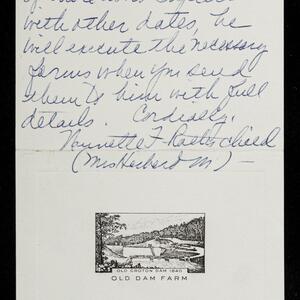 with other dates, he
will execute the necessary
forms when you send
them to him with full
details. Cordially,
Nannette F. Rothschild
(Mrs Herbert M) —
OLD CROTON DAM 1840
OLD DAM FARM